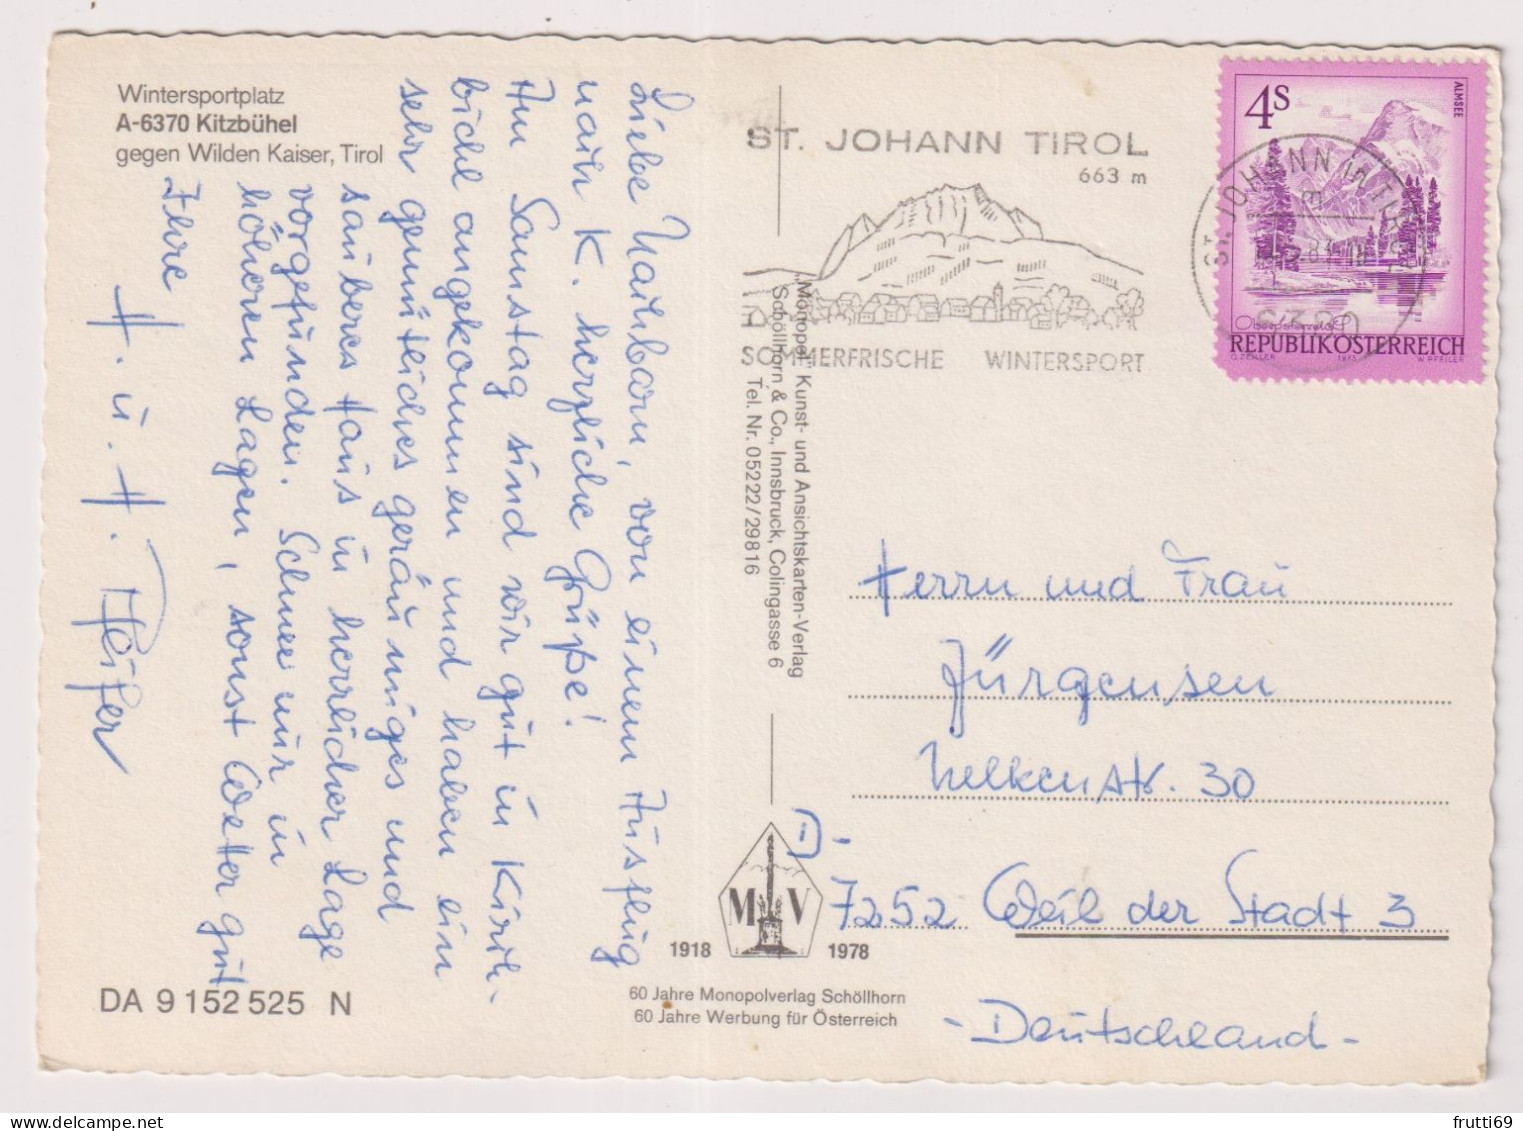 Wintersportplatz
A-6370 Kitzbühel
gegen Wilden Kaiser, Tirol
Liebe Nachbarn, von einem Ausflug
nach K. herzliche Grüße!
Am Samstag sind wir gut in Kirch-
bichl angekommen und haben ein
sehr gemütliches geräumiges und
sauberes Haus in herrlicher Lage
vorgefunden. Schnee nur in
höheren Lagen, sonst Wetter gut
Ihre
H. u. H. Pfeifer
DA 9 152 525 N
"Monopol" Kunst- und Ansichtskarten-Verlag
Schöllhorn & Co., Innsbruck, Colingasse 6
Tel. Nr. 05222/29816
MV
1918 1978
60 Jahre Monopolverlag Schöllhorn
60 Jahre Werbung für Österreich
ST. JOHANN TIROL
663 m
SOMMERFRISCHE WINTERSPORT
ST. JOHANN IN TIROL
6380
4S
ALMSEE
Oberösterreich
REPUBLIK ÖSTERREICH
O. ZEILLER 1975 W. PFEILER
Herrn und Frau
Jürgensen
Nelkenstr. 30
D-
7252 Weil der Stadt 3
- Deutschland -
frutti69